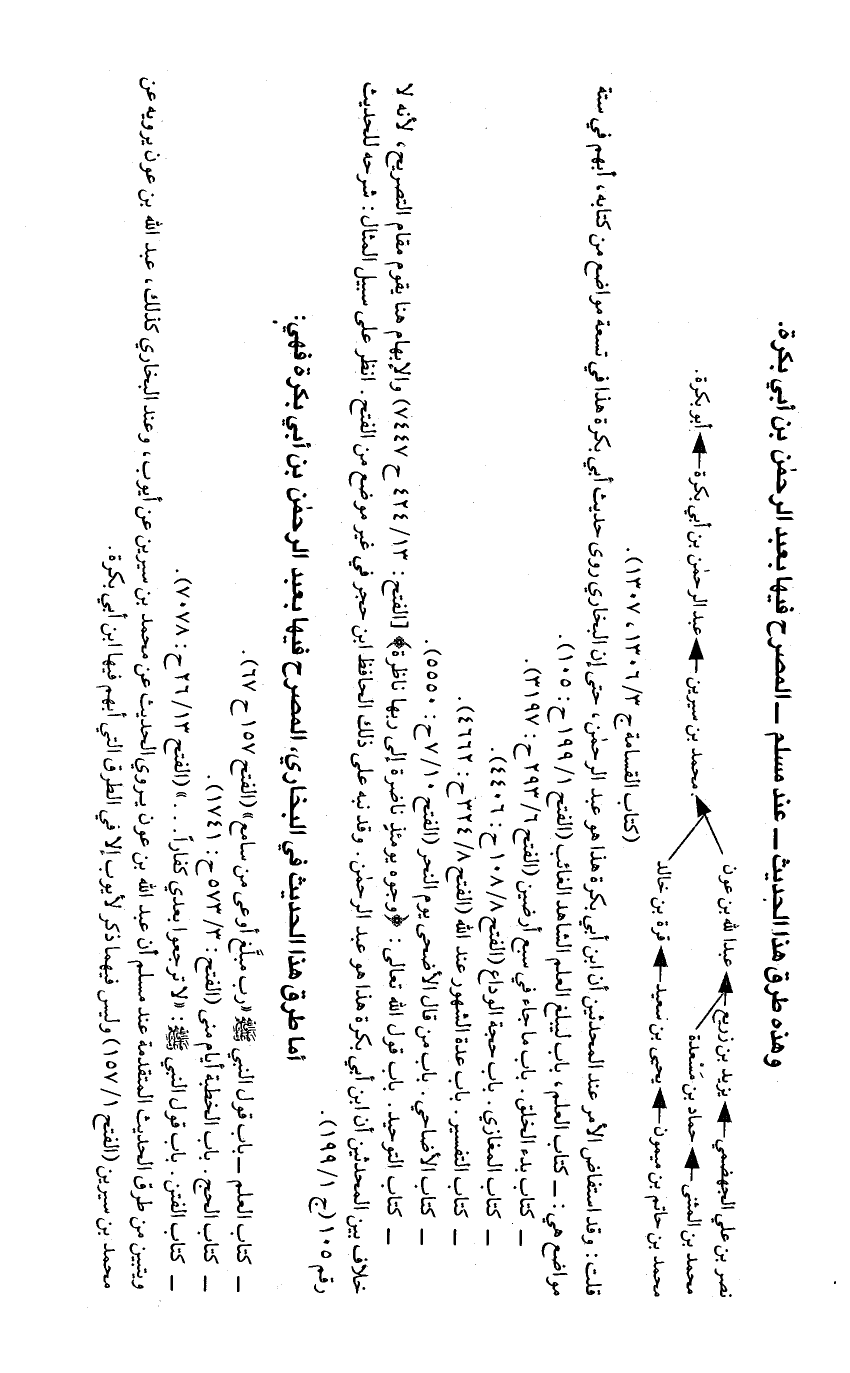 وهذه طرق هذا الحديث ــ عند مسلم ــ المصرح فيها بعبد الرحمٰن بن أبي بكرة.
نصر بن علي الجهضمي ← يزيد بن زريع ← عبد الله بن عون
محمد بن المثنى ← حماد بن مَسْعدة
محمد بن سيرين ← عبد الرحمٰن بن أبي بكرة ← أبو بكرة.
محمد بن حاتم بن ميمون ← يحيى بن سعيد ← قرة بن خالد
(كتاب القسامة ج ٣/ ١٣٠٦، ١٣٠٧).
قلت: وقد استفاض الأمر عند المحدثين أن ابن أبي بكرة هذا هو عبد الرحمٰن، حتى إن البخاري روى حديث أبي بكرة هذا في تسعة مواضع من كتابه، أبهم في ستة
مواضع هي: ــ كتاب العلم، باب ليبلغ العلم الشاهد الغائب (الفتح ١/ ١٩٩ ح: ١٠٥).
ــ كتاب بدء الخلق. باب ما جاء في سبع أرضين (الفتح ٦/ ٢٩٣ ح: ٣١٩٧).
ــ كتاب المغازي. باب حجة الوداع (الفتح ٨/ ١٠٨ ح: ٤٤٠٦).
ــ كتاب التفسير. باب عدة الشهور عند الله (الفتح ٨/ ٣٢٤ ح: ٤٦٦٢).
ــ كتاب الأضاحي. باب من قال الأضحى يوم النحر (الفتح ١٠/ ٧ ح: ٥٥٥٠).
ــ كتاب التوحيد. باب قول الله تعالى: ﴿وجوه يومئذٍ ناضرة إلى ربها ناظرة﴾ [الفتح: ١٣/ ٤٢٤ ح ٧٤٤٧) والإبهام هنا يقوم مقام التصريح، لأنه لا
خلاف بين المحدثين أن ابن أبي بكرة هذا هو عبد الرحمٰن. وقد نبه على ذلك الحافظ ابن حجر في غير موضع من الفتح. انظر على سبيل المثال: شرحه للحديث
رقم ١٠٥ (ج ١/ ١٩٩).
أما طرق هذا الحديث في البخاري، المصرح فيها بعبد الرحمٰن بن أبي بكرة فهي:
ــ كتاب العلم ــ باب قول النبي ﷺ «رب مبلَّغ أوعى من سامع» (الفتح ١٥٧ ح ٦٧).
ــ كتاب الحج. باب الخطبة أيام منى (الفتح: ٣/ ٥٧٣ ح: ١٧٤١).
ــ كتاب الفتن. باب قول النبي ﷺ: «لا ترجعوا بعدي كفاراً. . .» (الفتح ١٣/ ٢٦ ح: ٧٠٧٨).
ويتبين من طرق الحديث المتقدمة عند مسلم أن عبد الله بن عون يروي الحديث عن محمد بن سيرين عن أيوب، وعند البخاري كذلك، عبد الله بن عون يرويه عن
محمد بن سيرين (الفتح ١/ ١٥٧) وليس فيهما ذكر لأيوب إلا في الطرق التي أبهم فيها ابن أبي بكرة.